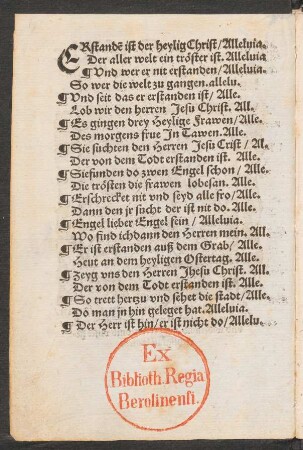 ERstandē ist der heylig Christ/Alleluia.
Der aller welt ein tröster ist. Alleluia
¶ Vnd wer er nit erstanden/Alleluia.
So wer die welt zu gangen.allelu.
¶ Vnd seit das er erstanden ist/ Alle.
Lob wir den herren Jesu Christ. All.
¶ Es gingen drey Heylige Frawen/ Alle.
Des morgens frue In Tawen. Alle.
¶ Sie suchten den Herren Jesu Crist / Al.
Der von dem Todt erstanden ist. Alle.
¶ Siefunden do zwen Engel schon / Alle.
Die trösten die frawen lobesan. Alle.
¶ Erschrecket nit vnd seyd alle fro/ Alle.
Dann den jr sucht der ist nit do. Alle.
¶ Engel lieber Engel fein / Alleluia.
Wo find ichdann den Herren mein. All.
¶ Er ist erstanden auß dem Grab/ Alle.
Heut an dem heyligen Ostertag. Alle.
¶ Zeyg vns den Herren Jhesu Christ. All.
Der von dem Todt erstanden ist. Alle.
¶ So trett hertzu vnd sehet die stadt/Alle.
Do man jn hin geleget hat. Alleluia.
¶ Der Herr ist hin/ er ist nicht do/ Allelu.
Ex
Biblioth. Regia
Berolinensi.